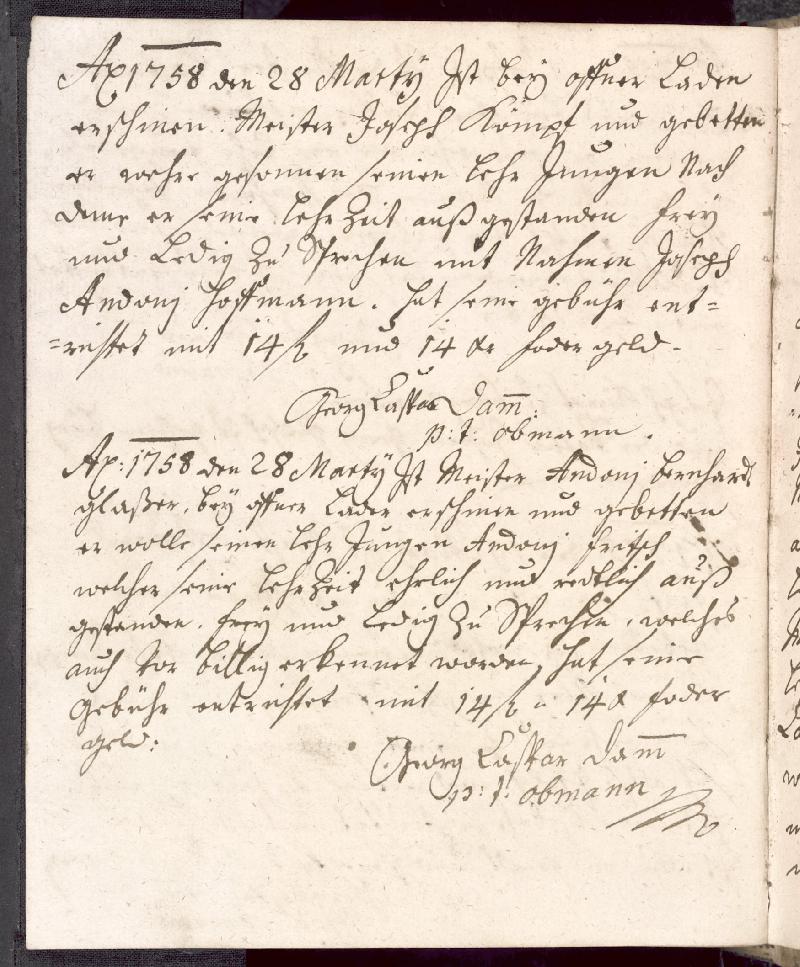 Ao 1758 den 28 Marty Ist bey offner Laden
erschinen. Meister Joseph Kömpf und gebetten
er wehre gesonnen seinen lehr Jungen Nach
deme er seine lehr Zeit außgestanden frey
und Ledig Zu Sprechen mit Nahmen Joseph
Andonj Hoffmann. hat seine gebühr ent=
=richtet mit 14 ß und 14 kr feder geld.
Georg Caspar Damm
p: t: obmann.
Ao: 1758 den 28 Marty Ist Meister Andonj bernhardt
glaßer, bey offner Laden erschinen und gebetten
er wolle seinen lehr Jungen Andonj fritsch
welcher seine lehr Zeit ehrlich und redtlich auß
gestanden. frey und Ledig Zu Sprechen, welches
auch vor billig erkennet worden, hat seine
Gebühr entrichtet mit 14 ß u 14 kr feder
geld:
Georg Caspar Damm
p: t: obmann